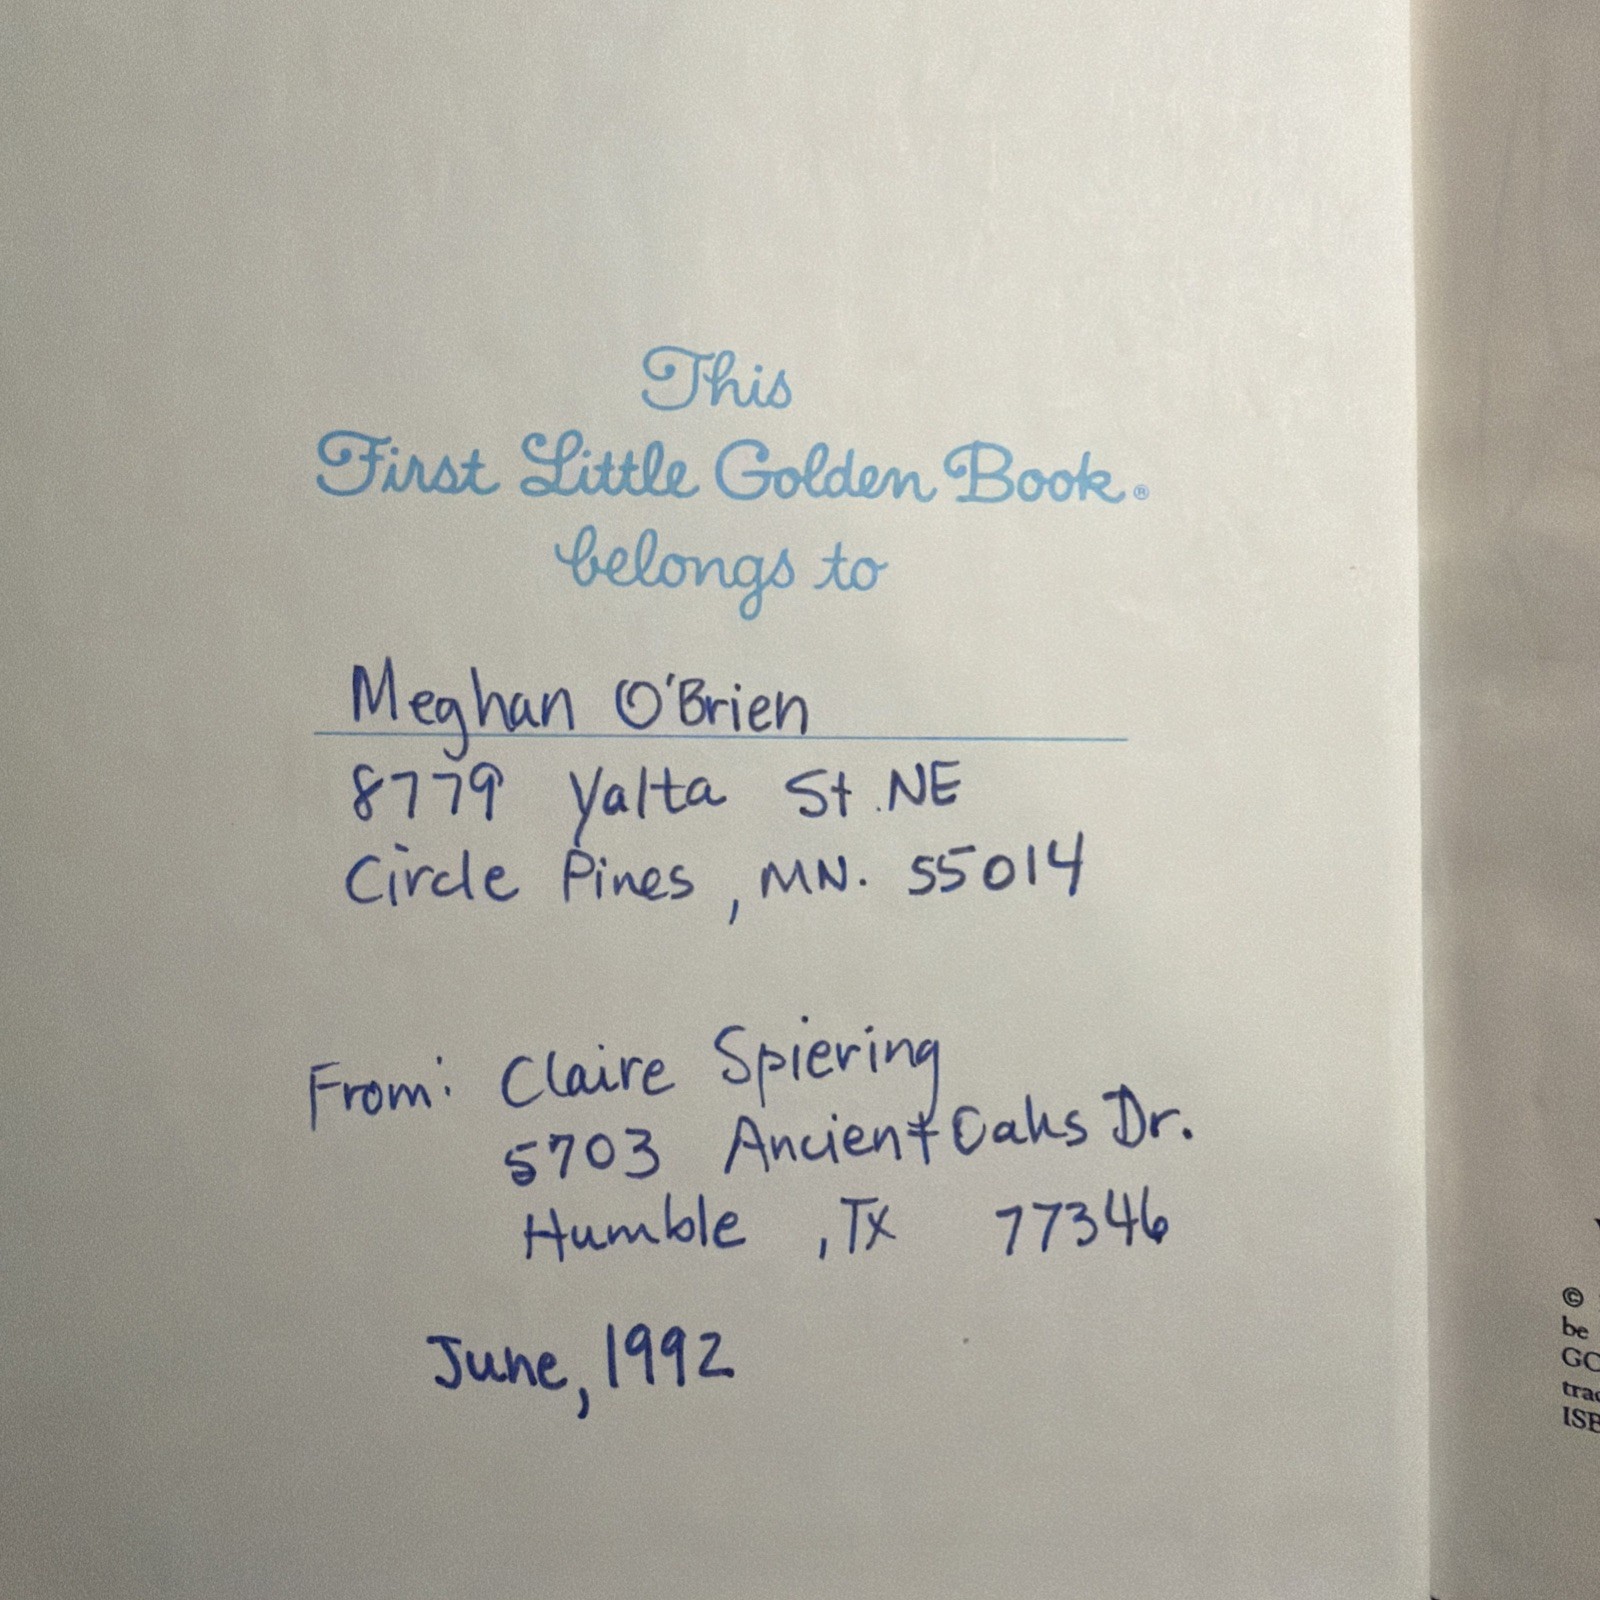 This
First Little Golden Book®
belongs to
Meghan O'Brien
8779 Yalta St. NE
Circle Pines, MN. 55014
From: Claire Spiering
5703 Ancient Oaks Dr.
Humble, Tx 77346
June, 1992
©
be
GO
trad
ISB